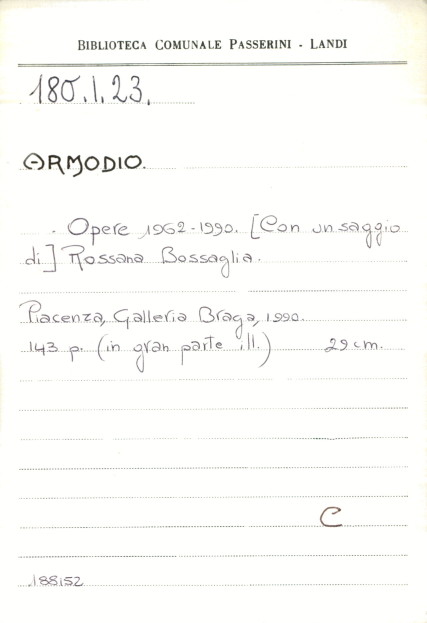 BIBLIOTECA COMUNALE PASSERINI - LANDI
180.I.23.
ARMODIO.
. Opere 1962-1990. [Con un saggio
di] Rossana Bossaglia.
Piacenza, Galleria Braga, 1990.
143 p. (in gran parte ill.) 29 cm.
C
188152